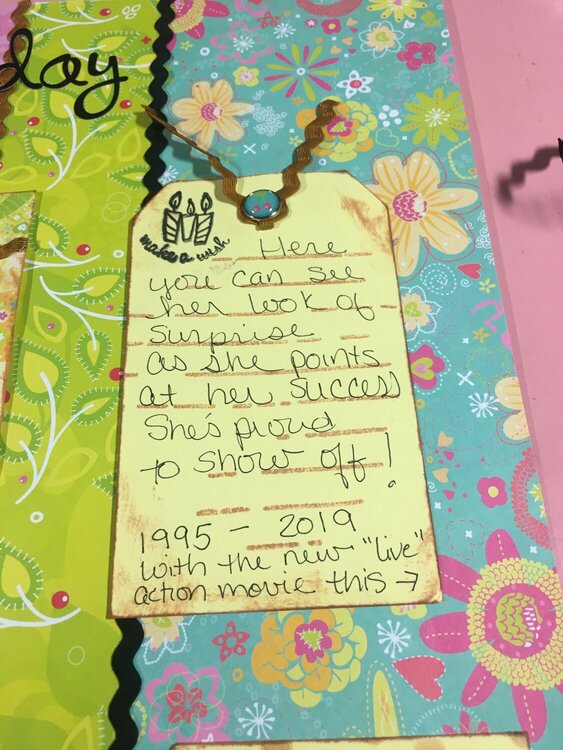 day
make a wish
Here
you can see
her look of
surprise
as she points
at her success
She's proud
to show off!
1995 - 2019
with the new "live"
action movie this →